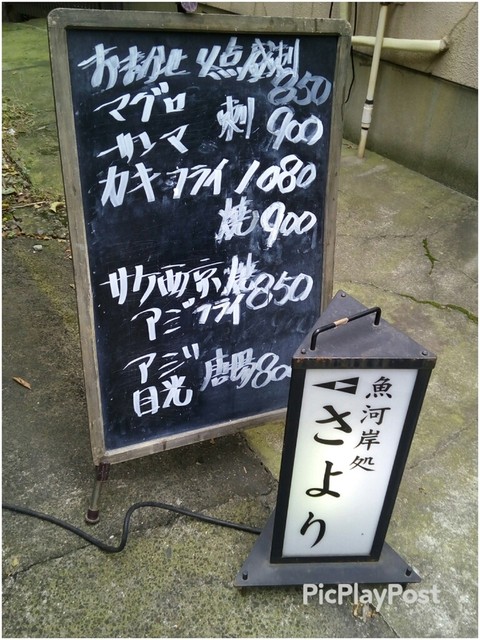 おまかせ 4点盛刺
850
マグロ
サンマ 刺 900
カキ フライ 1080
焼 900
サケ西京焼
アジフライ 850
アジ
目光 唐揚 80
魚河岸処
さより
PicPlayPost